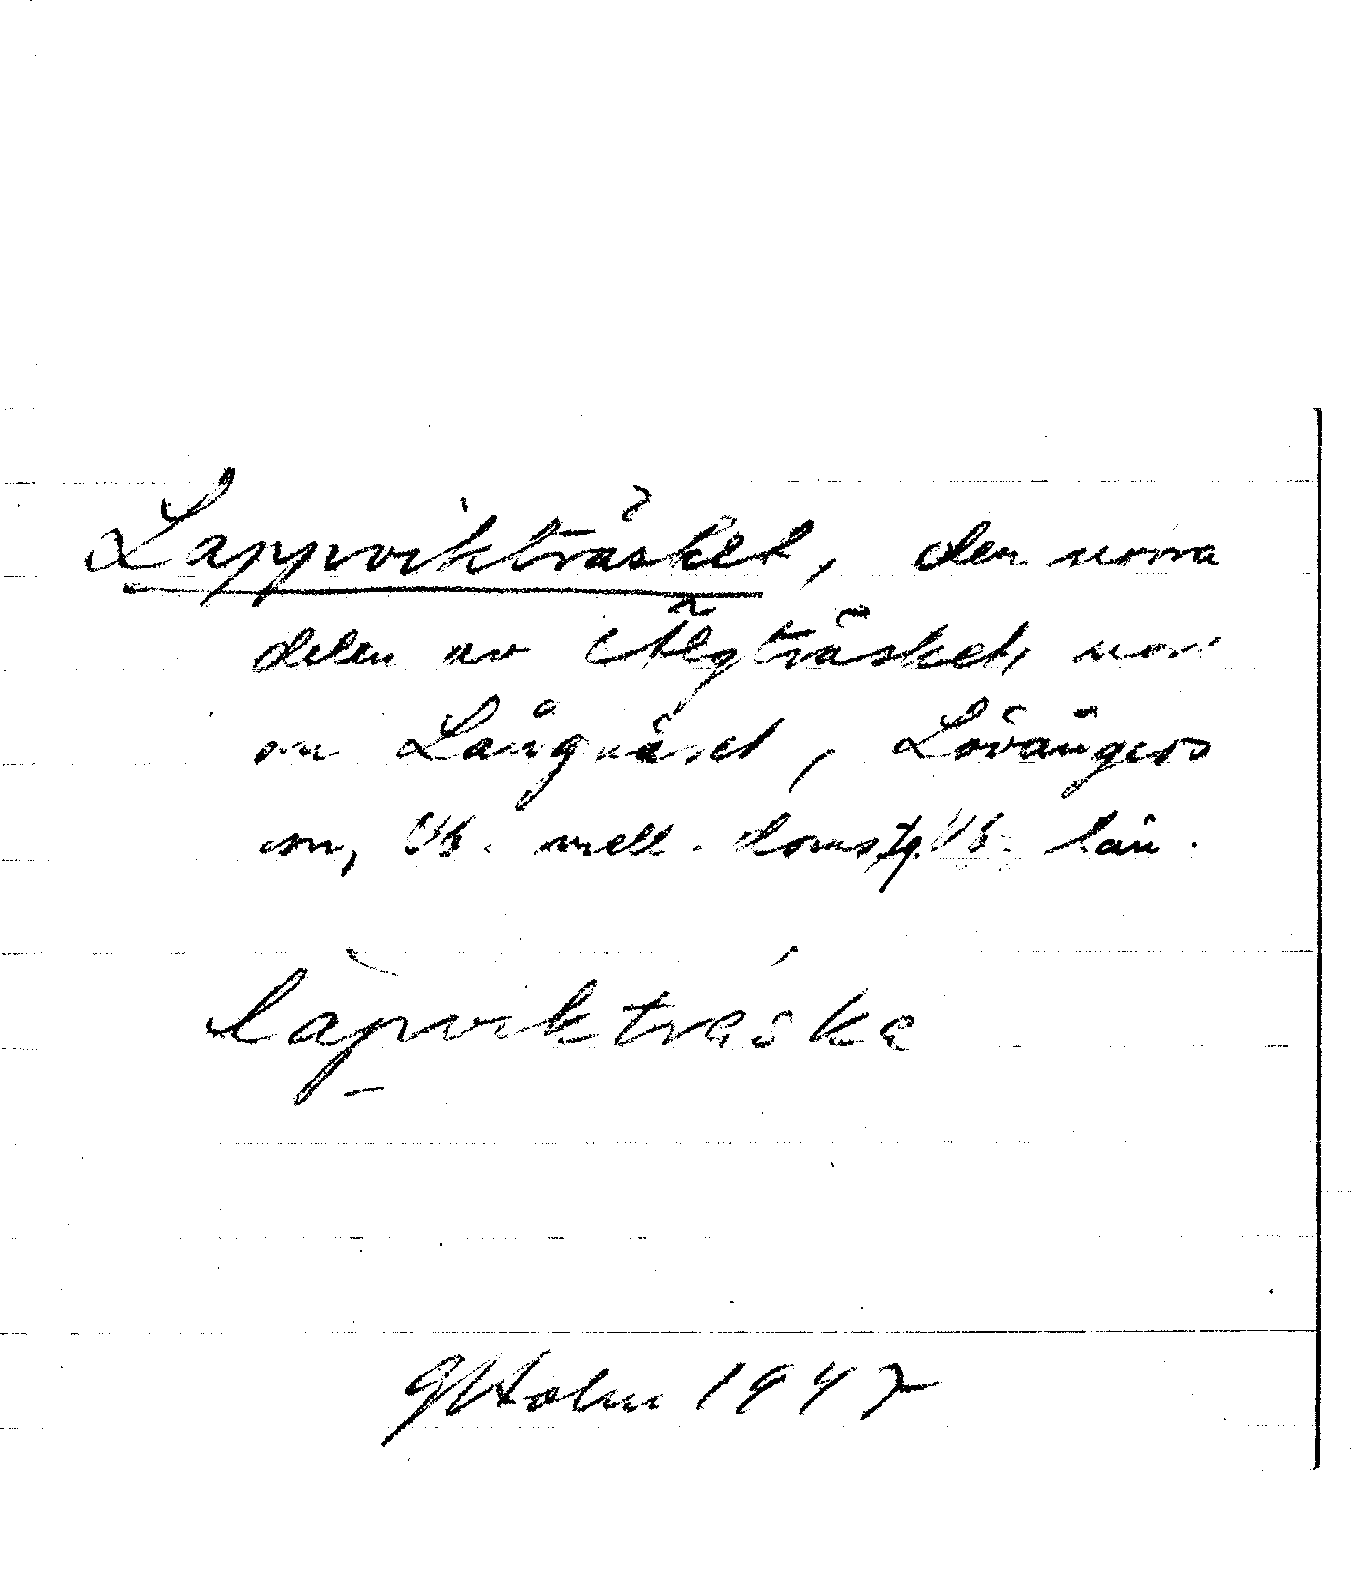 Lappvikträsket, den norra
delen av Älgträsket, norr
om Långnäset, Lövångers
sn, Vb. mell. domstg. Vb. län.
làpviktrǽska
G Holm 1947